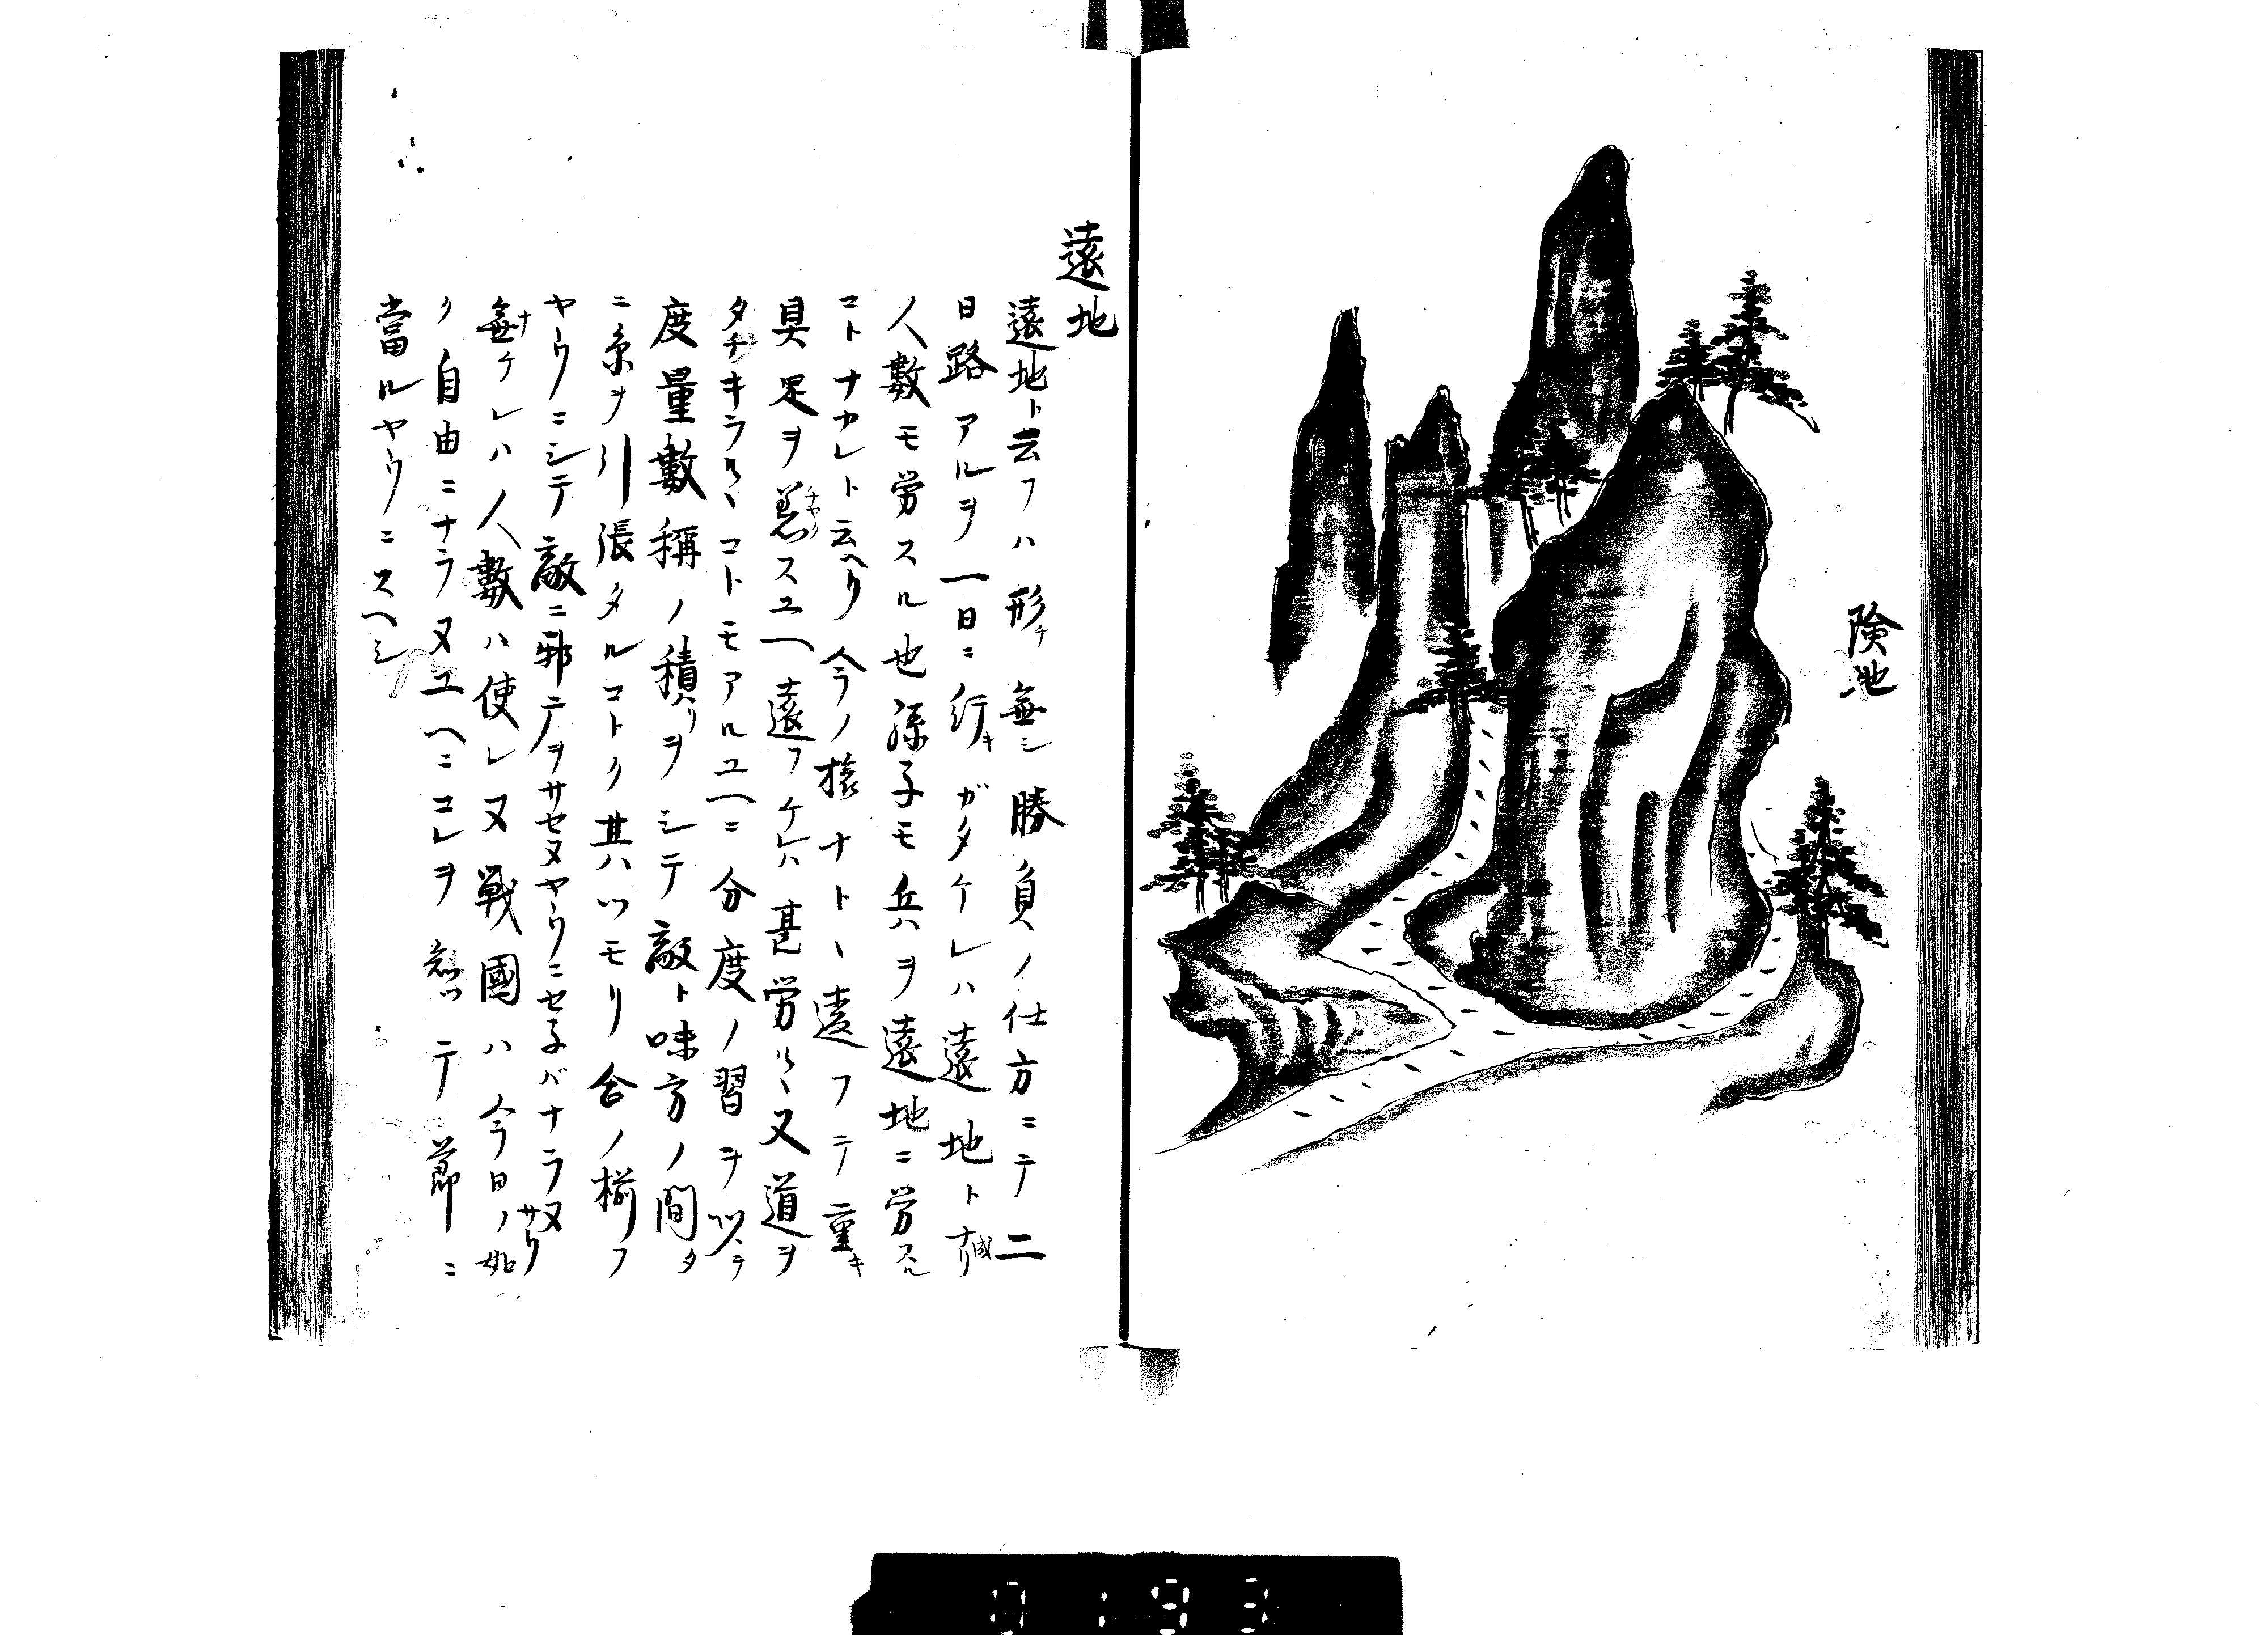 険地
遠地
遠地ト云フハ形チ無シ勝負ノ仕方ニテ二
日路アルヲ一日ニ行キガタケレハ遠地ト成ナリ
人數モ労スル也孫子モ兵ハヲ遠地ニ労スル
コトナカレト云ヘリ今ノ様ナトヽ違フテ重キ
具足ヲ着チヤクスユヘ遠フケレハ甚労レ又道ヲ
タチキラルヽコトモアルユヘニ分度ノ習ヲ以テ
度量數稱ノ積リヲシテ敵ト味方ノ間タ
ニ糸ヲ引張タルコトク其ハツモリ合ノ揃フ
ヤウニシテ敵ニ邪テヲサセヌヤウニセ子バナラヌ
無ナケレハ人數ハ使レヌ戦國ハ今日ノ如
ク自由ニナラヌユヘニコレヲ テ節ニ
當ルヤウニスヘシ